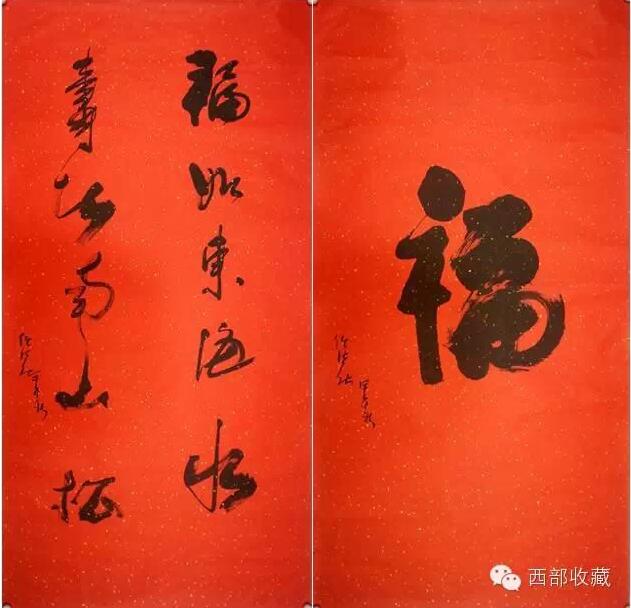 福如東海水
壽比南山松
福
西部收藏